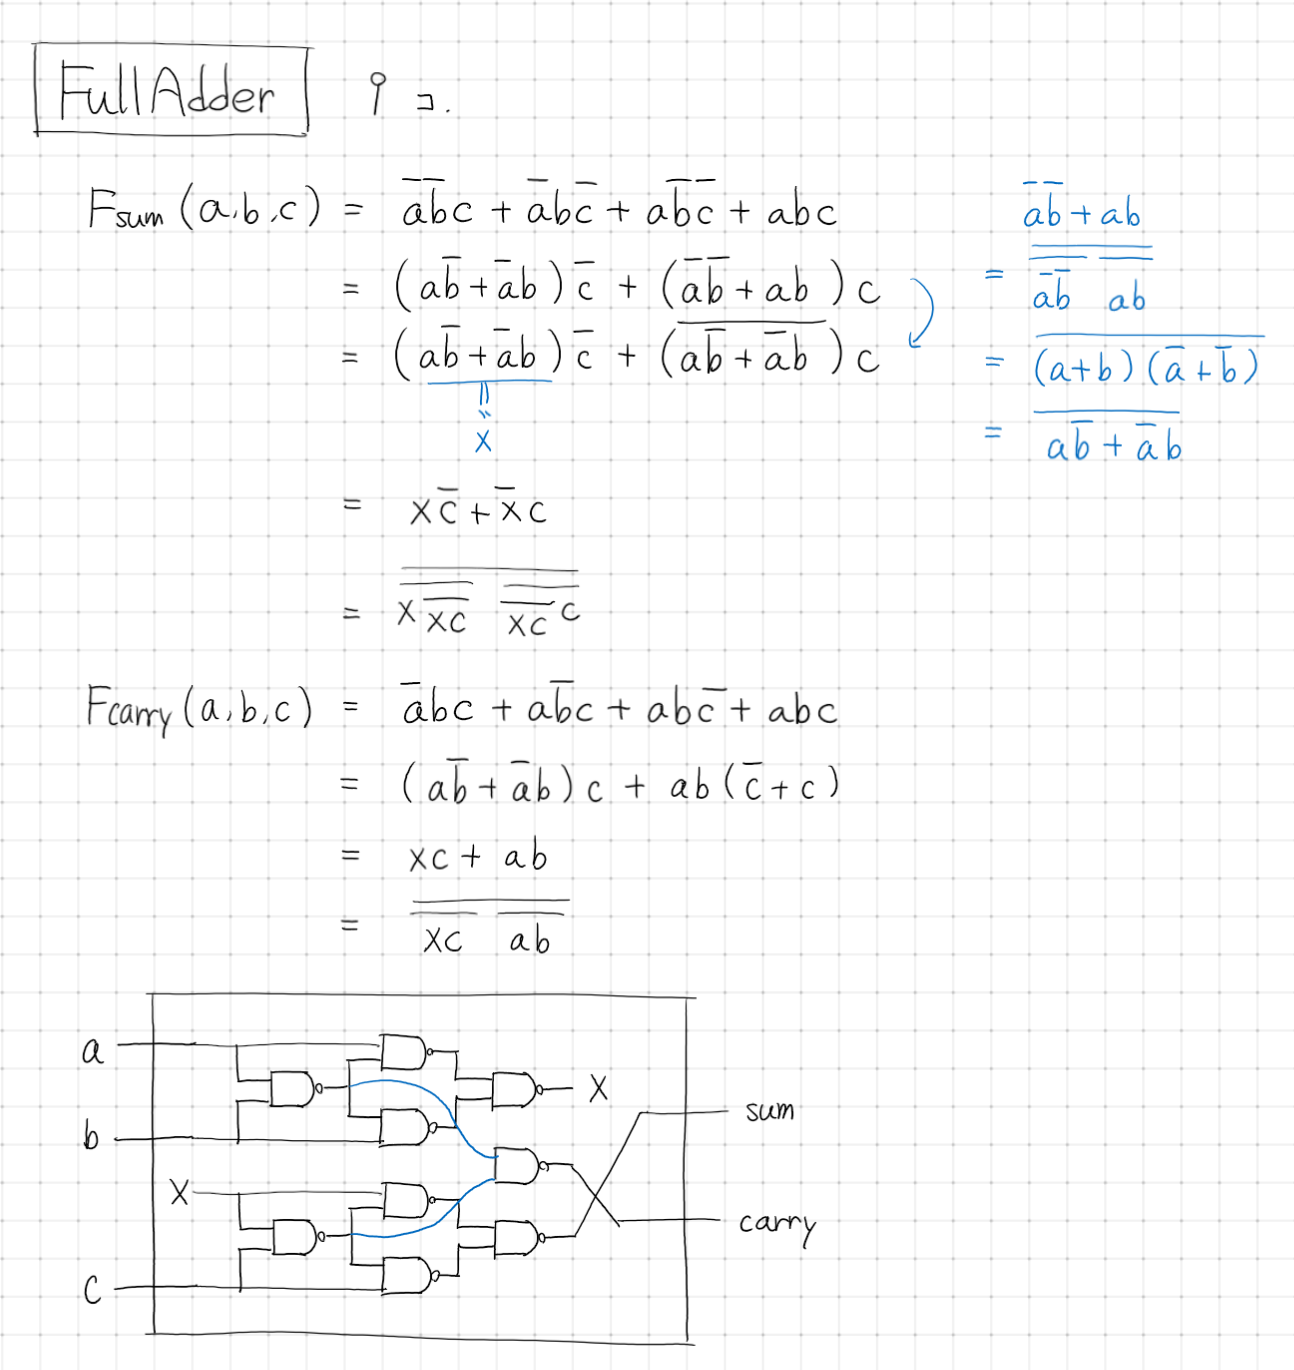 Full Adder 9 コ.
Fsum (a,b,c) = a̅b̅c + a̅bc̅ + ab̅c̅ + abc
= (ab̅ + a̅b) c̅ + (a̅b̅ + ab) c
= (ab̅ + a̅b) c̅ + \overline{(ab̅ + a̅b)} c
x
= xc̅ + x̅c
= \overline{\overline{x \overline{xc}} \overline{\overline{xc} c}}
a̅b̅ + ab
= \overline{\overline{a̅b̅} \overline{ab}}
= \overline{(a+b)(a̅+b̅)}
= \overline{ab̅ + a̅b}
Fcarry (a,b,c) = a̅bc + ab̅c + abc̅ + abc
= (ab̅ + a̅b) c + ab (c̅ + c)
= xc + ab
= \overline{\overline{xc} \overline{ab}}
a
x
b
sum
x
carry
c